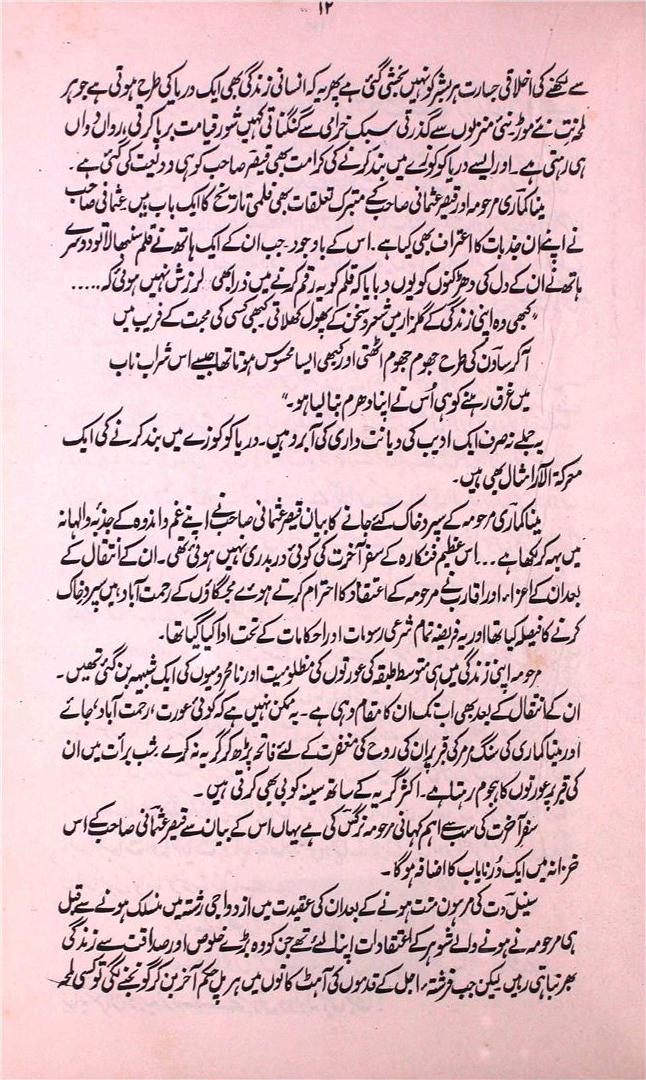 ۱۲
سے لکھنے کی اخلاقی جسارت ہر بشر کو نہیں بخشی گئی ہے پھر یہ کہ انسانی زندگی بھی ایک دریا کی طرح ہوتی ہے جو ہر
لمحہ نت نئے موڑ، نئی منزلوں سے گذرتی سبک خرامی سے گنگناتی کہیں شور قیامت برپا کرتی، رواں دواں
ہی رہتی ہے۔ اور ایسے دریا کو کوزے میں بند کرنے کی کرامت بھی قیصر صاحب کو ہی ودیعت کی گئی ہے۔
مینا کماری مرحومہ اور قیصر عثمانی صاحب کے متبرک تعلقات بھی فلمی تاریخ کا ایک باب ہیں۔ عثمانی صاحب
نے اپنے ان جذبات کا اعتراف بھی کیا ہے۔ اس کے باوجود۔ جب ان کے ایک ہاتھ نے قلم سنبھالا تو دوسرے
ہاتھ نے ان کے دل کی دھڑکنوں کو یوں دبا یا کہ قلم کو یہ رقم کرنے میں ذرا بھی لرزش نہیں ہوئی کہ.....
"کبھی وہ اپنی زندگی کے گلزار میں شعر و سخن کے پھول کھلاتی کبھی کسی کی محبت کے فریب میں
آکر ساون کی طرح جھوم جھوم اٹھتی اور کبھی ایسا محسوس ہوتا تھا جیسے اس شراب ناب
میں غرق رہنے کو ہی اُس نے اپنا دھرم بنا لیا ہو۔"
یہ جملے نہ صرف ایک ادیب کی دیانت داری کی آبرو ہیں۔ دریا کو کوزے میں بند کرنے کی ایک
معرکۃ الآرا مثال بھی ہیں۔
مینا کماری مرحومہ کے سپرد خاک کئے جانے کا بیان قیصر عثمانی صاحب نے اپنے غم و اندوہ کے جذبۂ والہانہ
میں بہہ کر لکھا ہے... اس عظیم فنکارہ کے سفر آخرت کی کوئی در بدری نہیں ہوئی تھی۔ ان کے انتقال کے
بعد ان کے اعزاء اور اقارب نے مرحومہ کے اعتقاد کا احترام کرتے ہوئے مجگاؤں کے رحمت آباد میں سپرد خاک
کرنے کا فیصلہ کیا تھا اور یہ فریضہ تمام شرعی رسومات اور احکامات کے تحت ادا کیا گیا تھا۔
مرحومہ اپنی زندگی میں ہی متوسط طبقہ کی عورتوں کی مظلومیت اور نامحرومیوں کی ایک شبیہہ بن گئی تھیں۔
ان کے انتقال کے بعد بھی اب تک ان کا مقام وہی ہے۔ یہ ممکن نہیں ہے کہ کوئی عورت، رحمت آباد، جائے
اور مینا کماری کی سنگ مرمر کی قبر پر ان کی روح کی مغفرت کے لئے فاتحہ پڑھ کر گریہ نہ کرے۔ شب برأت میں ان
کی قبر پہ عورتوں کا ہجوم رہتا ہے۔ اکثر گریہ کے ساتھ سینہ کوبی بھی کرتی ہیں۔
سفر آخرت کی سب سے اہم کہانی مرحومہ نرگس کی ہے یہاں اس کے بیان سے قیصر عثمانی صاحب کے اس
خزانہ میں ایک دُرِ نایاب کا اضافہ ہوگا۔
سنیل دت کی مرہون منت ہونے کے بعد ان کی عقیدت میں ازدواجی رشتہ میں منسلک ہونے سے قبل
ہی مرحومہ نے ہونے والے شوہر کے اعتقادات اپنا لئے تھے جن کو وہ بڑے خلوص اور صداقت سے زندگی
بھر نباہتی رہیں لیکن جب فرشتۂ اجل کے قدموں کی آہٹ کانوں میں ہر پل حکم آخر بن کر گونجنے لگی تو کسی لمحہ